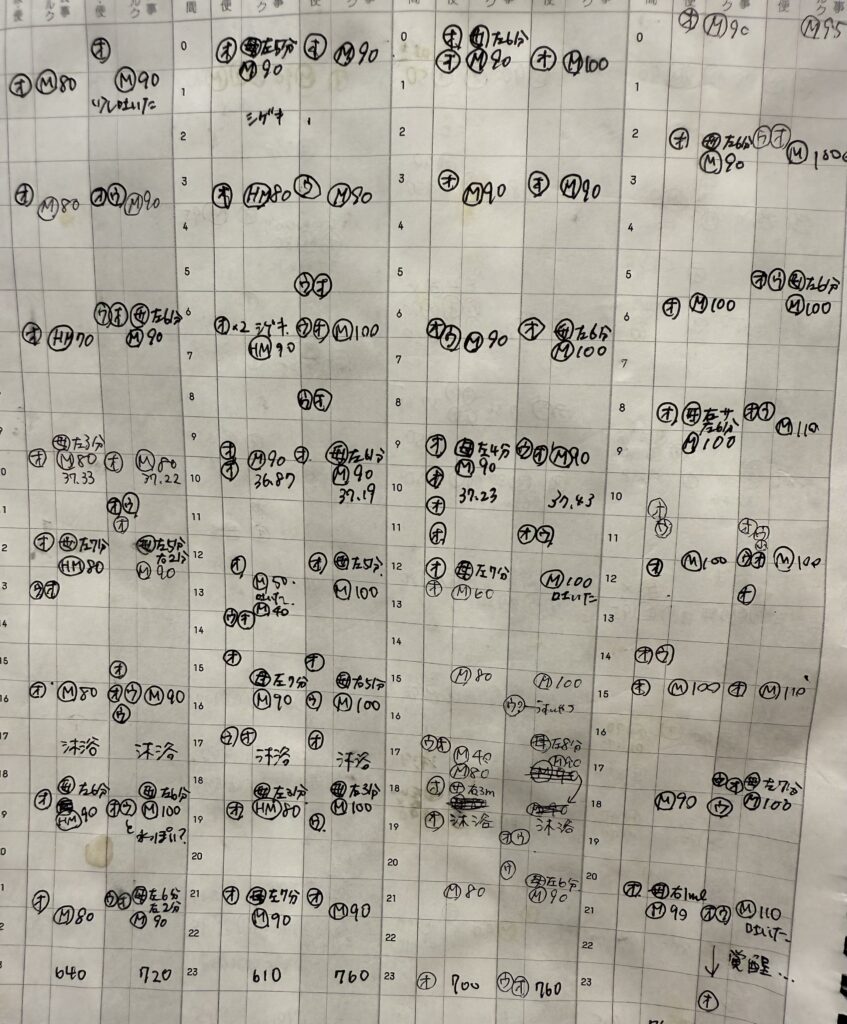 便 ルク 事 便 ルク 事 間 便 ク 事 便 ク 事 間 便
オ オ M80 M90
いっし吐いた
オ M80 オウ M90
オ HM70 ウオ 母左6分
M90
母左3分
オ M80 オ M80
37.33 37.22
オウ
オ
オ 母左7分 母左5分
HM80 右2分
M90
ウオ
オ
オ M80 オウ M90
ウ
沐浴 沐浴
オ 母左6分 母左6分
HM90 オウ M100
と わっぽい?
オ M80 ウオ 母左6分
左2分
M90
640 720
0 オ 母左5分 オ M90
M90
1
シゲキ
2
3 オ HM80 ウ M80
4
5 ウオ
6 オ×2 シゲキ ウオ M100
HM90
7
8 ウオ
9 オ M90 オ 母左4分
オ M90
10 36.87 37.19
11
12 オ オ 母左5分
M50
13 吐いた M100
M40
14 ウオ
15 オ オ
母左7分 母右5分
16 M90 ウ M100
17 ウオ オ
沐浴 沐浴
18 母左3分 母右3分
19 オ HM80 M100
ウ
20
21 オ 母左7分 オ
M90 M90
22
23 610 760
0 オ 母左6分
オ M90 オ M100
1
2
3 オ M90 オ M90
4
5
6 オウ M90 オ 母左6分
7 M100
8
9 オ 母左4分 ウオ M90
M90
10 オ 37.23 37.43
オ
11 オ オウ
12 オ 母左7分 M100
13 オ M60 吐いた
14
15 M80 M100
16 ウ うすいやつ
17 ウオ M40 母左8分
M80 M90
18 オ 母右3m
19 オ 沐浴 沐浴
オウ
20 ウ
母左6分
21 M80 M90
22
23 オ 700 ウオ 760
0 オ M90 M95
1
2 オ 母左6分 ウオ
M90 M100
3
4
5 オウ 母左6分
6 オ M100 M100
7
8 オ 母右サ オウ
左6分 M110
9 M100
10 オ
ウ オ
11 ウ
12 オ M100 ウオ M100
オ
13
14 オウ
15 オ M100 オ M110
16
17 ウオ 母左7分
18 M90 ウ M100
19
20 オ 母右1ml
21 M90 オウ M110
吐いた
22 ↓ 覚醒…
23 オ